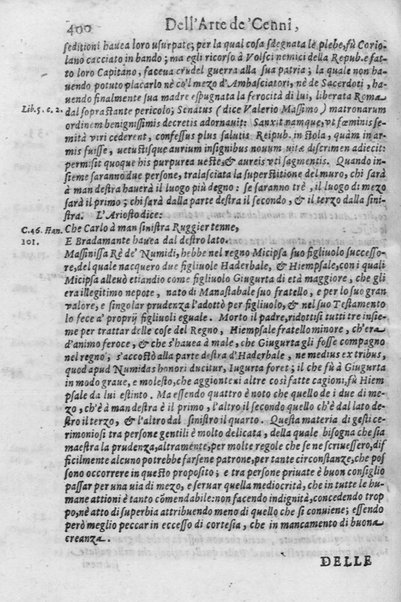 400 Dell'Arte de'Cenni,
seditioni hauea loro usurpate; per la qual cosa sdegnata le plebe, fù Corio-
lano cacciato in bando; ma egli ricorso à Volsci nemici della Repub. e fat-
to loro Capitano, faceua crudel guerra alla sua patria; la quale non ha-
uendo potuto placarlo nè co'l mezo d'Ambasciatori, nè de Sacerdoti, ha-
uendo finalmente sua madre espugnata la ferocità di lui, liberata Roma
Lib. 5. c. 2. dal soprastante pericolo; Senatus (dice Valerio Massimo) matronarum
ordinem benignissimis decretis adornauit: Sanxit namque, vt fœminis se-
mita viri cederent, confessus plus salutis Reipub. in stola, quàm in ar-
mis fuisse, uetustisque aurium insignibus nouum uittæ discrimen adiecit:
permisit quoque his purpurea ueste, & aureis vti sagmentis. Quando in-
sieme saranno due persone, tralasciata la superstitione del muro, chi sarà
à man destra hauerà il luogo più degno: se saranno trè, il luogo di mezo
sarà il primo; chi sarà dalla parte destra il secondo, & il terzo dalla sini-
stra. L'Ariosto dice:
C. 46. stan. Che Carlo à man sinistra Ruggier tenne,
101. E Bradamante hauea dal destro lato.
Massinissa Rè de' Numidi, hebbe nel regno Micipsa suo figliuolo successo-
re, del quale nacquero due figliuole Haderbale, & Hiempsale, con i quali
Micipsa alleuò etiandio come figliuolo Giugurta di età maggiore, che gli
era illegitimo nepote, nato di Manastabale suo fratello, e per lo suo gran
valore, e singolar prudenza l'adottò per figliuolo, & nel suo Testamento
lo fece a' proprij figliuoli eguale. Morto il padre, ridottisi tutti tre insie-
me per trattar delle cose del Regno, Hiempsale fratello minore, ch'era
d'animo feroce, & che s'hauea à male, che Giugurta gli fosse compagno
nel regno, s'accostò alla parte destra d'Haderbale, ne medius ex tribus,
quod apud Numidas honori ducitur, Iugurta foret; il che fù à Giugurta
in modo graue, e molesto, che aggionteui altre così fatte cagioni, fù Hiem
psale da lui estinto. Ma essendo quattro è noto che quello de i due di me-
zo, ch'è à man destra è il primo, l'altro il secondo quello ch'è dal lato de-
stro il terzo, & l'altro dal sinistro il quarto. Questa materia di gesti ce-
rimoniosi tra persone gentili è molto delicata, della quale bisogna che sia
maestra la prudenza, altramente, per molte regole che se ne scriuessero, dif
ficilmente alcuno potrebbe farsene patrone, per tante circonstanze, che pos
sono occorrere in questo proposito; e tra persone priuate è buon consiglio
passar per una uia di mezo, e seruar quella mediocrità, che in tutte le hu-
mane attioni è tanto cōmendabile: non facendo indignità, concedendo trop
po, nè atto di superbia attribuendo meno di quello che si conuiene; essendo
però meglio peccar in eccesso di cortesia, che in mancamento di buona
creanza.
DELLE